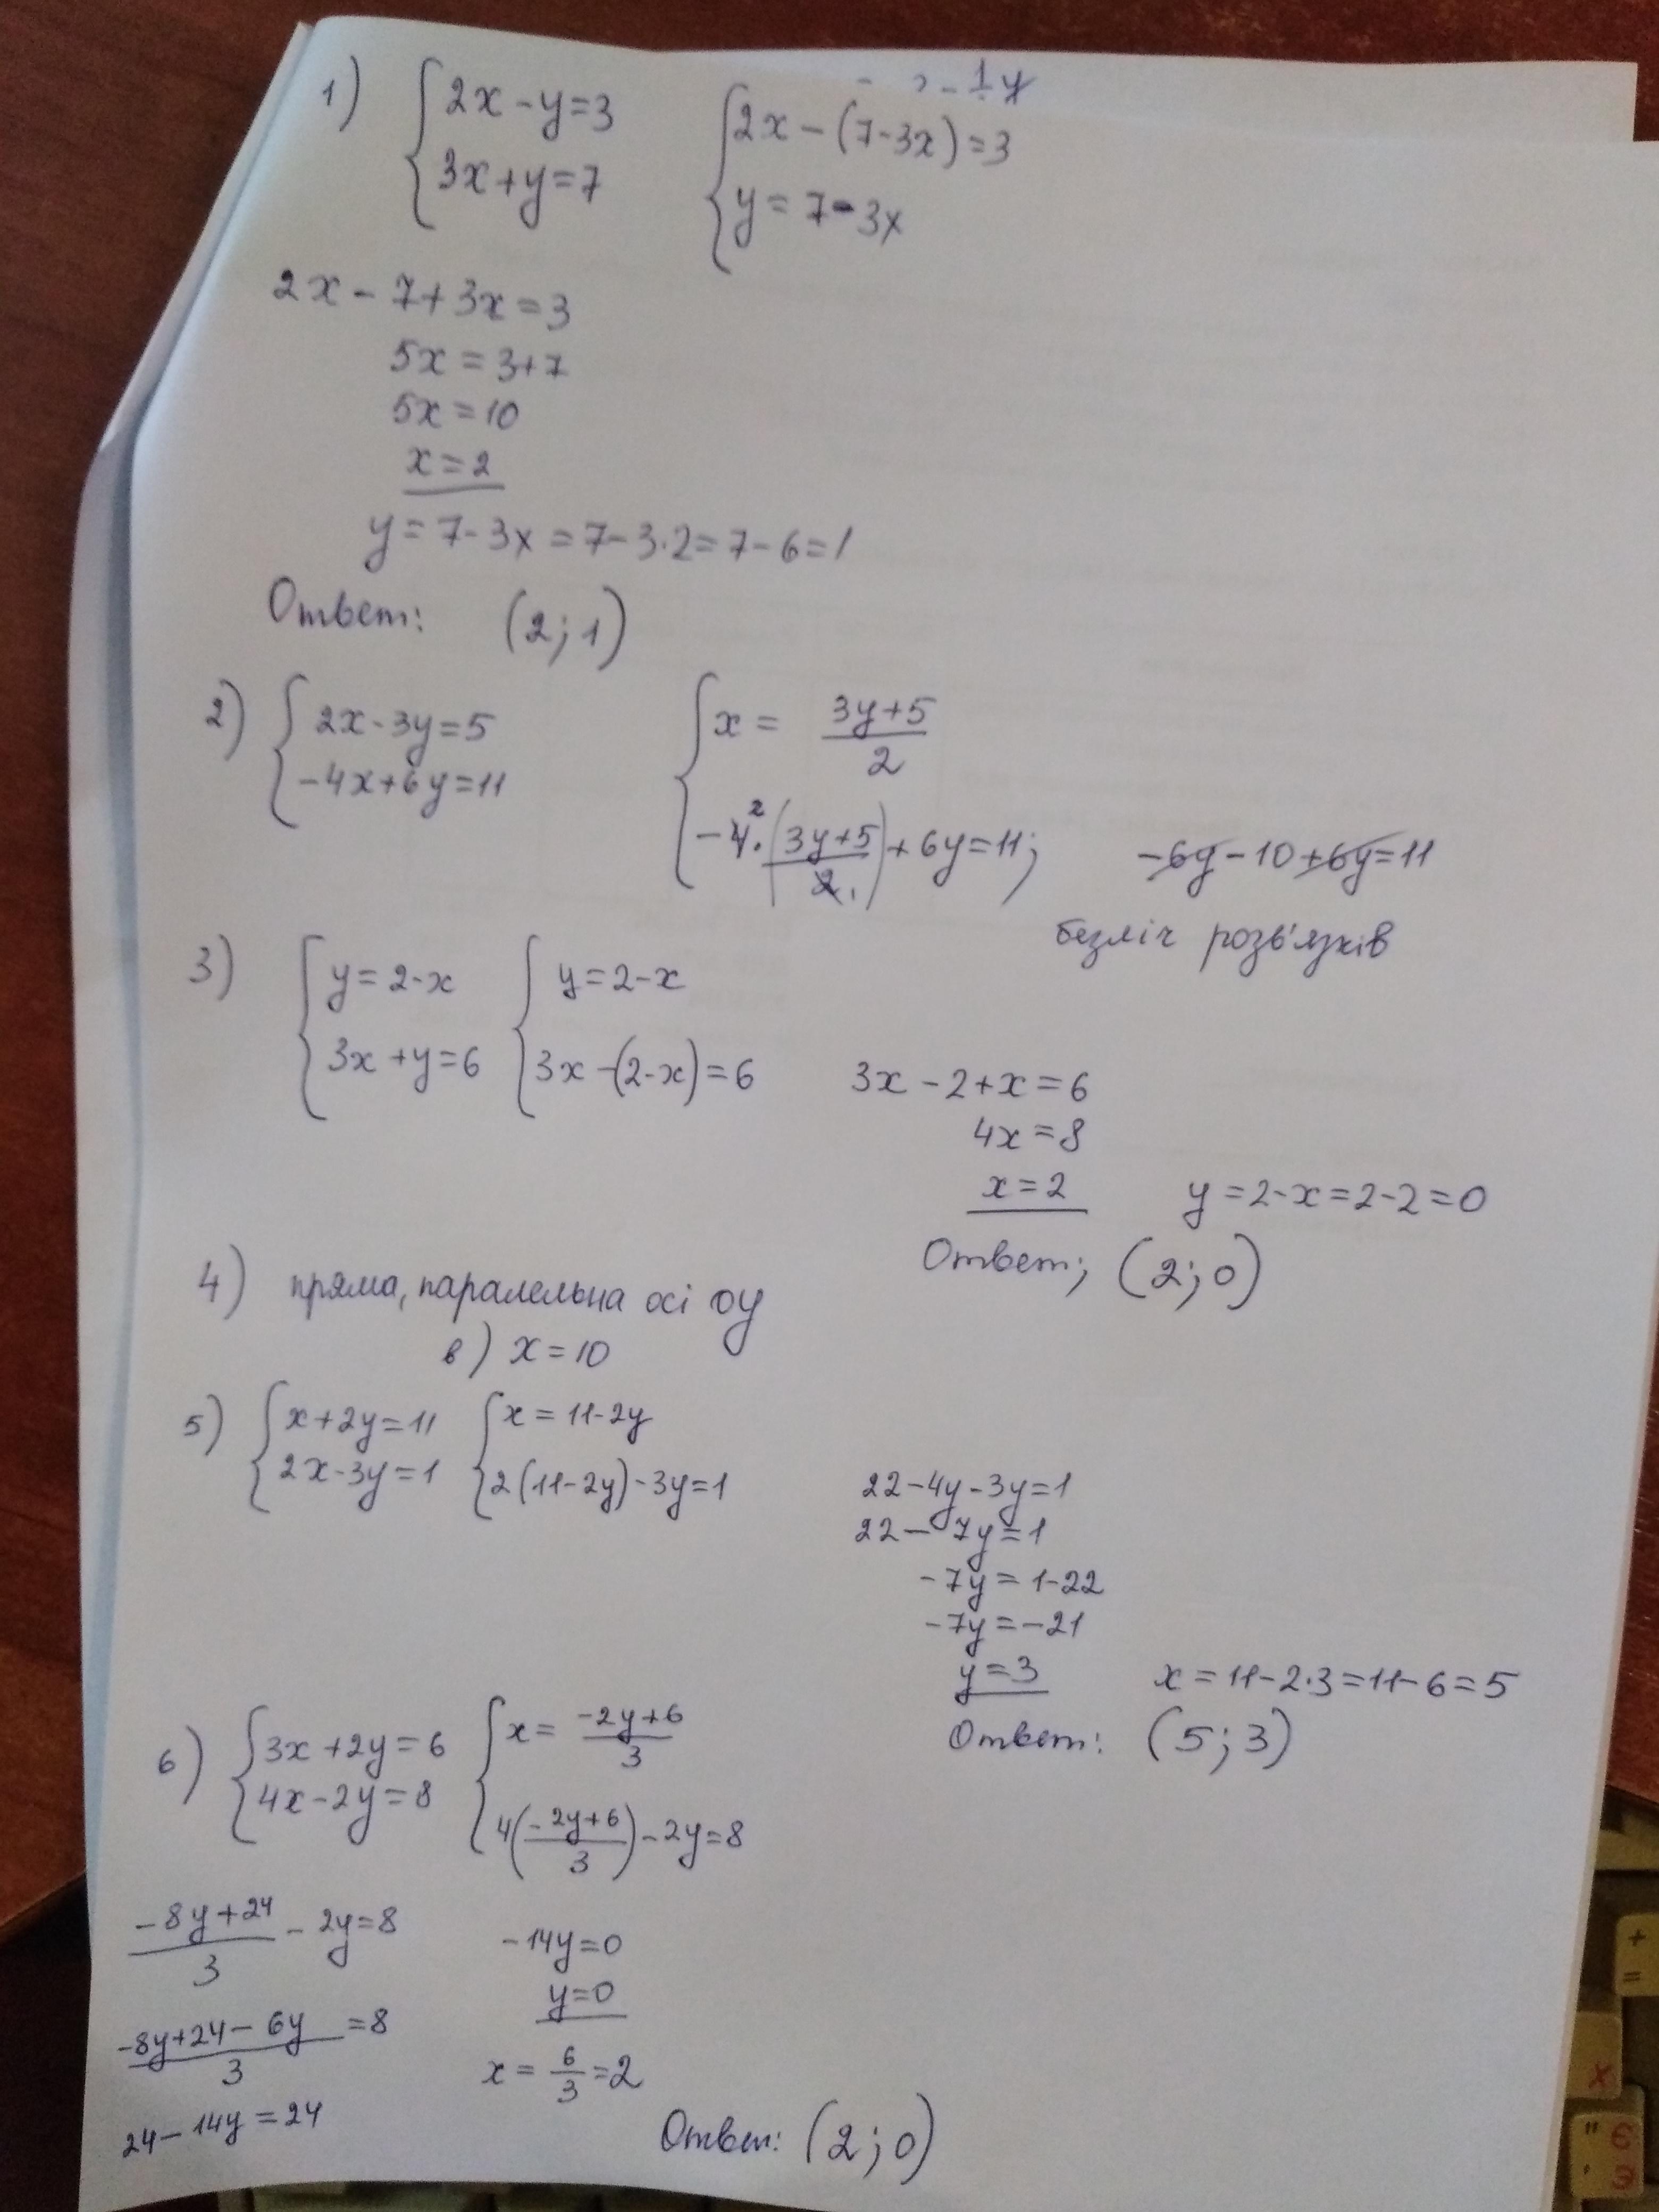 - 1/ y
1) { 2x - y = 3
3x + y = 7
{ 2x - (7 - 3x) = 3
y = 7 - 3x
2x - 7 + 3x = 3
5x = 3 + 7
5x = 10
x = 2
y = 7 - 3x = 7 - 3·2 = 7 - 6 = 1
Ответ: (2; 1)
2) { 2x - 3y = 5
-4x + 6y = 11
{ x = (3y + 5)/2
-4² · (3y + 5)/2 + 6y = 11;
-6y - 10 + 6y = 11
безліч розв'язків
3) { y = 2 - x
3x + y = 6
{ y = 2 - x
3x - (2 - x) = 6
3x - 2 + x = 6
4x = 8
x = 2
y = 2 - x = 2 - 2 = 0
Ответ; (2; 0)
4) пряма, паралельна осі oy
в) x = 10
5) { x + 2y = 11
2x - 3y = 1
{ x = 11 - 2y
2(11 - 2y) - 3y = 1
22 - 4y - 3y = 1
22 - 7y = 1
-7y = 1 - 22
-7y = -21
y = 3
x = 11 - 2·3 = 11 - 6 = 5
Ответ: (5; 3)
6) { 3x + 2y = 6
4x - 2y = 8
{ x = (-2y + 6)/3
4((-2y + 6)/3) - 2y = 8
(-8y + 24)/3 - 2y = 8
(-8y + 24 - 6y)/3 = 8
24 - 14y = 24
-14y = 0
y = 0
x = 6/3 = 2
Ответ: (2; 0)
+
=
X
" Є
' Э